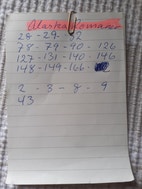 Alaska Roman
28 - 29 - 32
78 - 79 - 90 - 126
127 - 131 - 140 - 146
148 - 149 - 166 -
2 - 3 - 8 - 9
43